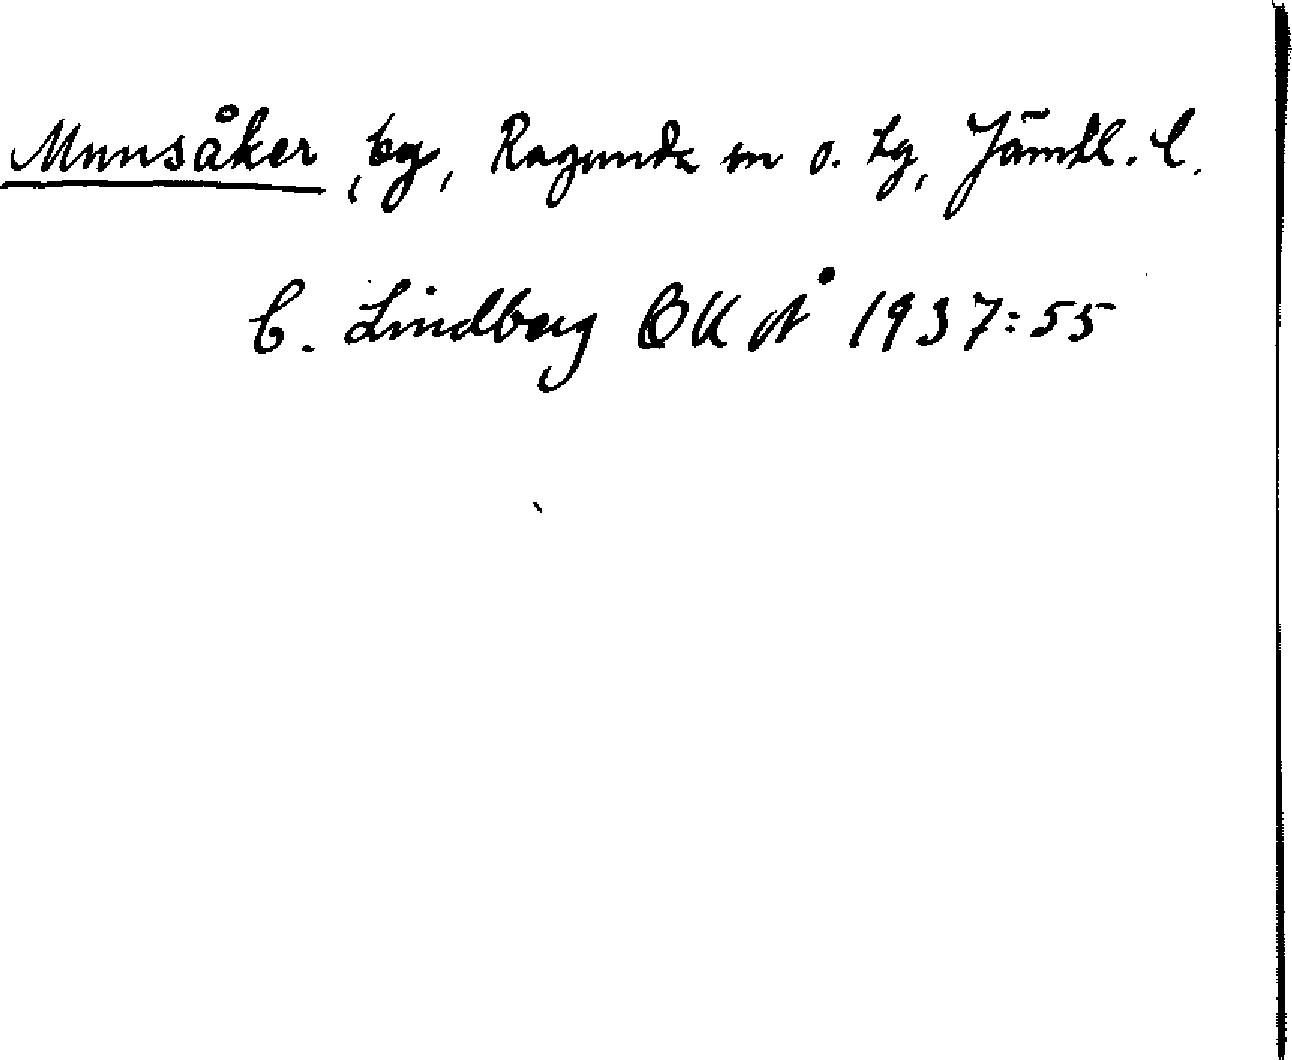 Munsåker, by, Ragunda sn o. tg, Jämtl. l.
C. Lindberg OKÅ 1937:55